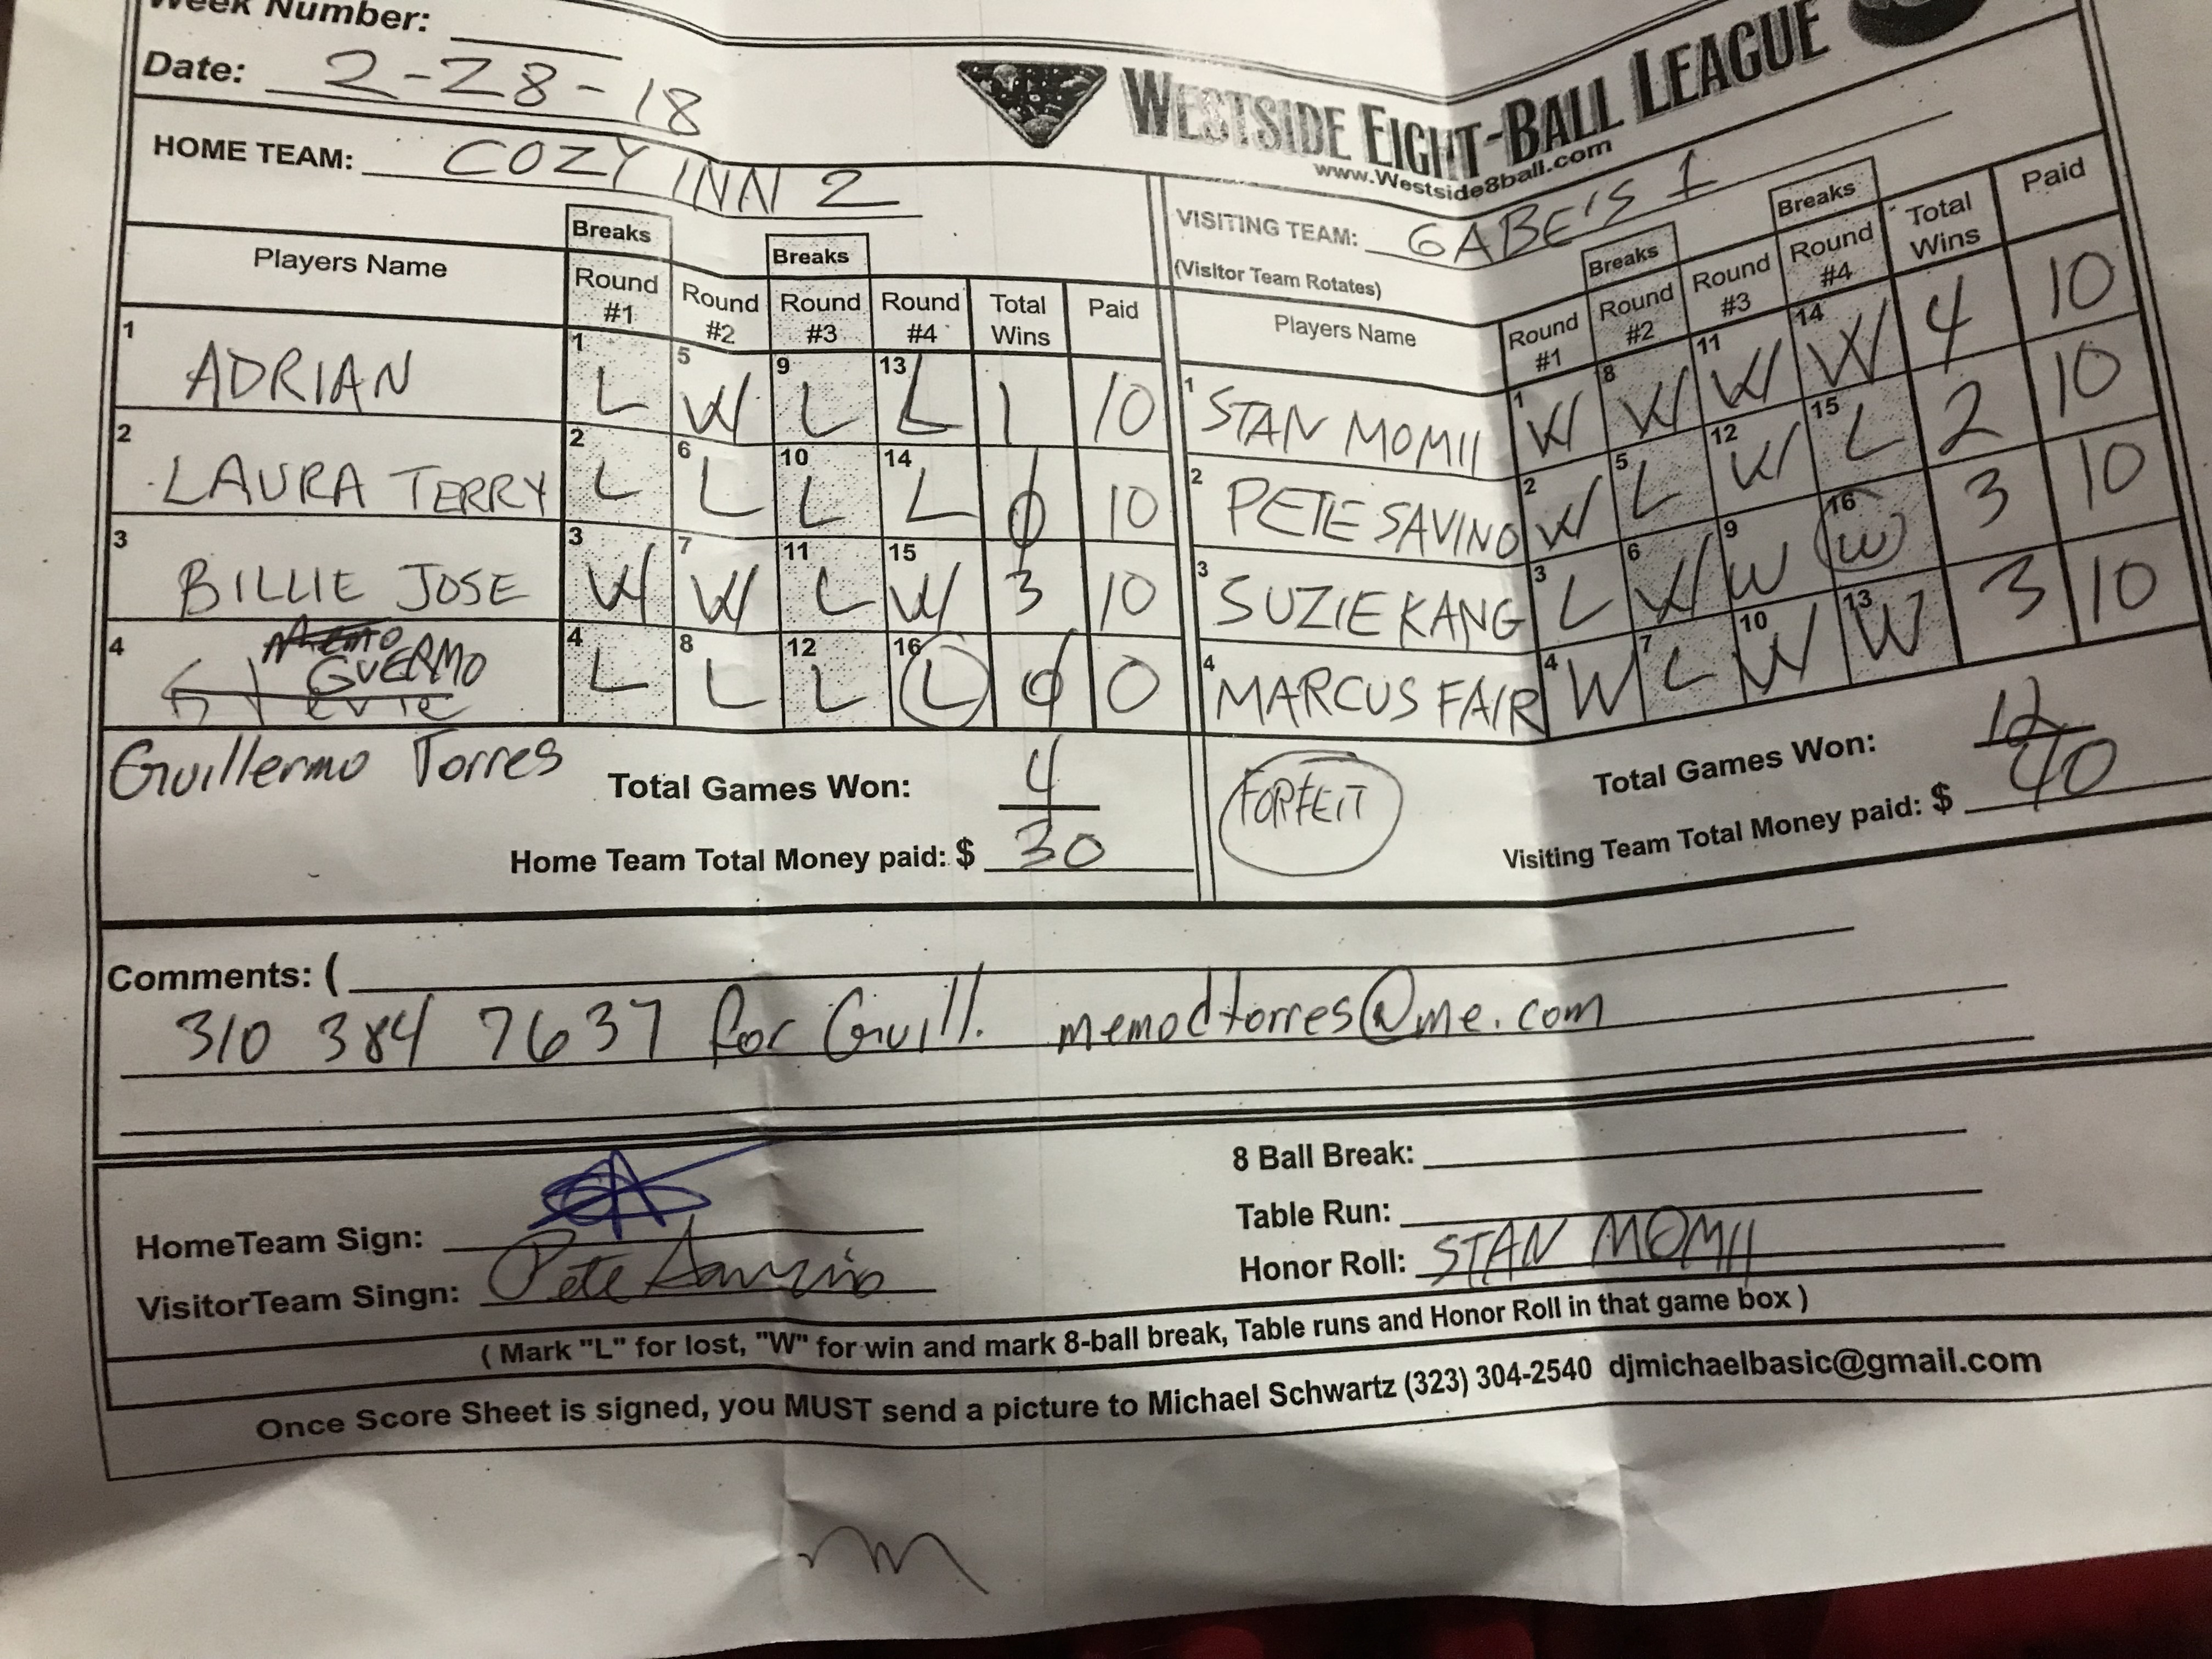 Week Number:
Date: 2-28-18
WESTSIDE EIGHT-BALL LEAGUE
www.Westside8ball.com
HOME TEAM: COZY INN 2
VISITING TEAM: GABE'S 1
(Visitor Team Rotates)
Breaks Breaks
Players Name Round #1 Round #2 Round #3 Round #4 Total Wins Paid
1 ADRIAN 1 L 5 W 9 L 13 L 1 10
2 LAURA TERRY 2 L 6 L 10 L 14 L 0 10
3 BILLIE JOSE 3 W 7 W 11 L 15 W 3 10
4 Memo GUERMO 4 L 8 L 12 L 16 L 0 0
Guillermo Torres
Total Games Won: 4
Home Team Total Money paid: $ 30
Breaks Breaks
Players Name Round #1 Round #2 Round #3 Round #4 Total Wins Paid
1 STAN MOMII 1 W 8 W 11 W 14 W 4 10
2 PETE SAVINO 2 W 5 L 12 W 15 L 2 10
3 SUZIE KANG 3 L 6 W 9 W 16 W 3 10
4 MARCUS FAIR 4 W 7 L 10 W 13 W 3 10
FORFEIT
Total Games Won: 12
Visiting Team Total Money paid: $ 40
Comments: (
310 384 7637 for Guill. memodtorres@me.com
HomeTeam Sign:
VisitorTeam Singn: Pete Savino
8 Ball Break:
Table Run:
Honor Roll: STAN MOMII
( Mark "L" for lost, "W" for win and mark 8-ball break, Table runs and Honor Roll in that game box )
Once Score Sheet is signed, you MUST send a picture to Michael Schwartz (323) 304-2540 djmichaelbasic@gmail.com